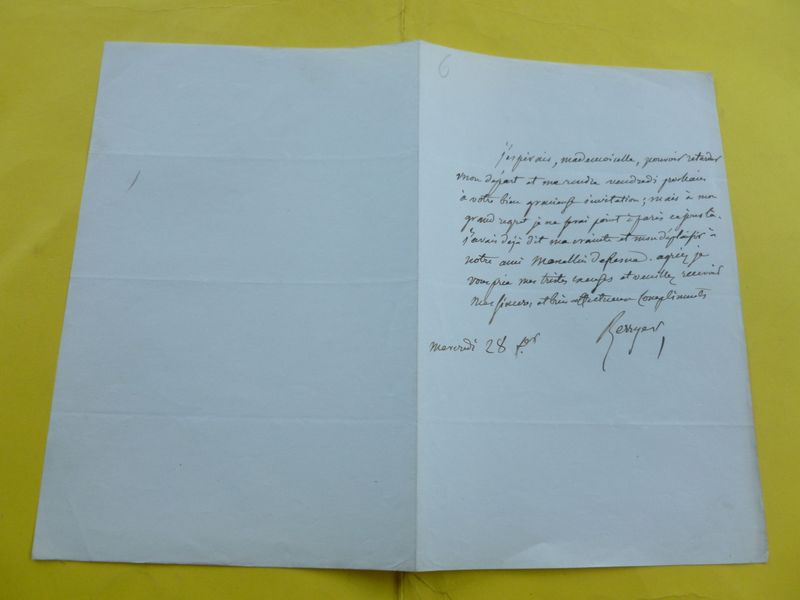 6
j'espérais, mademoiselle, pouvoir retarder
mon départ et me rendre vendredi prochain
à votre bien gracieuse invitation; mais à mon
grand regret je ne serai point à paris ce jour là.
j'avais déjà dit ma crainte et mon déplaisir à
notre ami Marcellin . agréez je
vous prie mes tristes excuses et veuillez recevoir
mes sincères et bien affectueux compliments
Berryer
mercredi 28